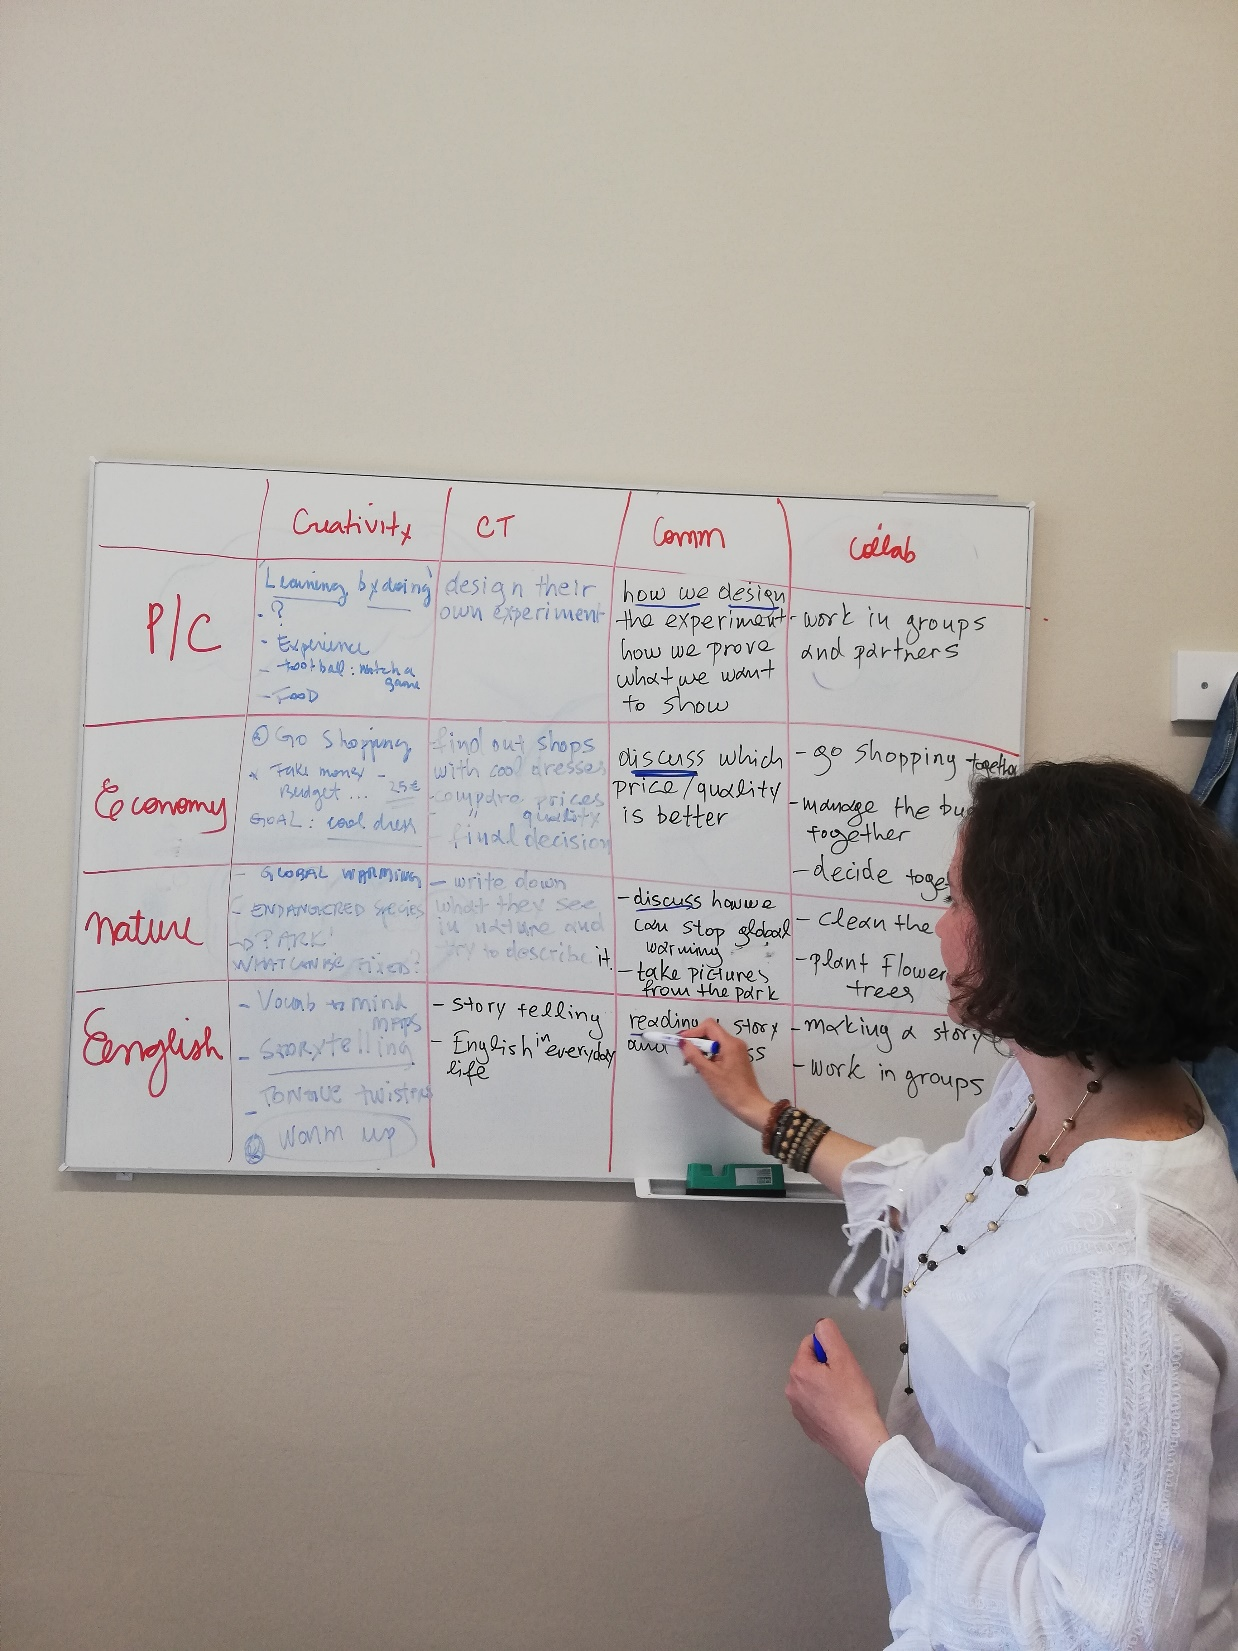 Creativity
CT
Comm
Collab
P/C
'Learning by doing'
- ?
- Experience
- football: watch a
game
- FOOD
design their
own experiment
how we design
the experiment
how we prove
what we want
to show
- work in groups
and partners
Economy
Go Shopping
* Take money -
Budget... 25€
GOAL: cool dress
find out shops
with cool dresses
- prices
- " quality
- final decision
discuss which
price/quality
is better
- go shopping together
- manage the
together
- decide
nature
- GLOBAL WARMING
- ENDANGERED Species
PARK
WHAT CAN BE FIXED?
- write down
what they see
in nature and
try to describe it.
- discuss how we
can stop global
warming
- take pictures
from the park
- Clean the
- plant flower
trees
Eenglish
- Vocab to mind
maps
- STORYtelling
- TONGUE twisters
Warm up
- story telling
- English in everyday
life
reading story
and
- making a story
- work in groups